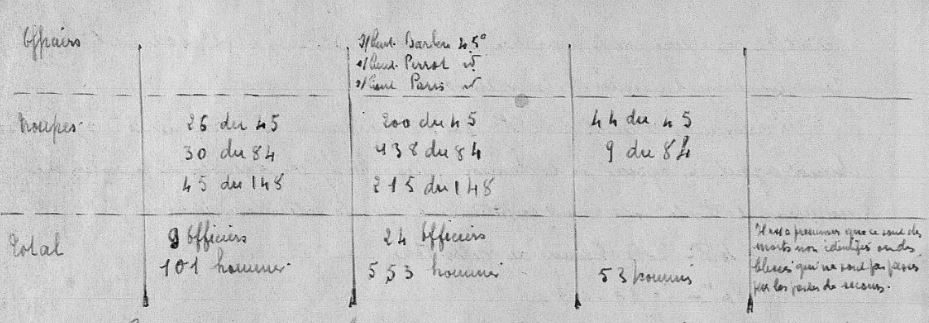 Officiers
S/Lieut. Barbere 45e
S/Lieut. Perrot id
S/Lieut Paris id
Troupes.
26 du 45
200 du 45
44 du 45
30 du 84
138 du 84
9 du 84
45 du 148
215 du 148
Total
9 Officiers
24 Officiers
101 hommes
553 hommes
53 hommes
Il est à présumer que ce sont des
morts non identifiés ou des
blessés qui ne sont pas passés
par les postes de secours.